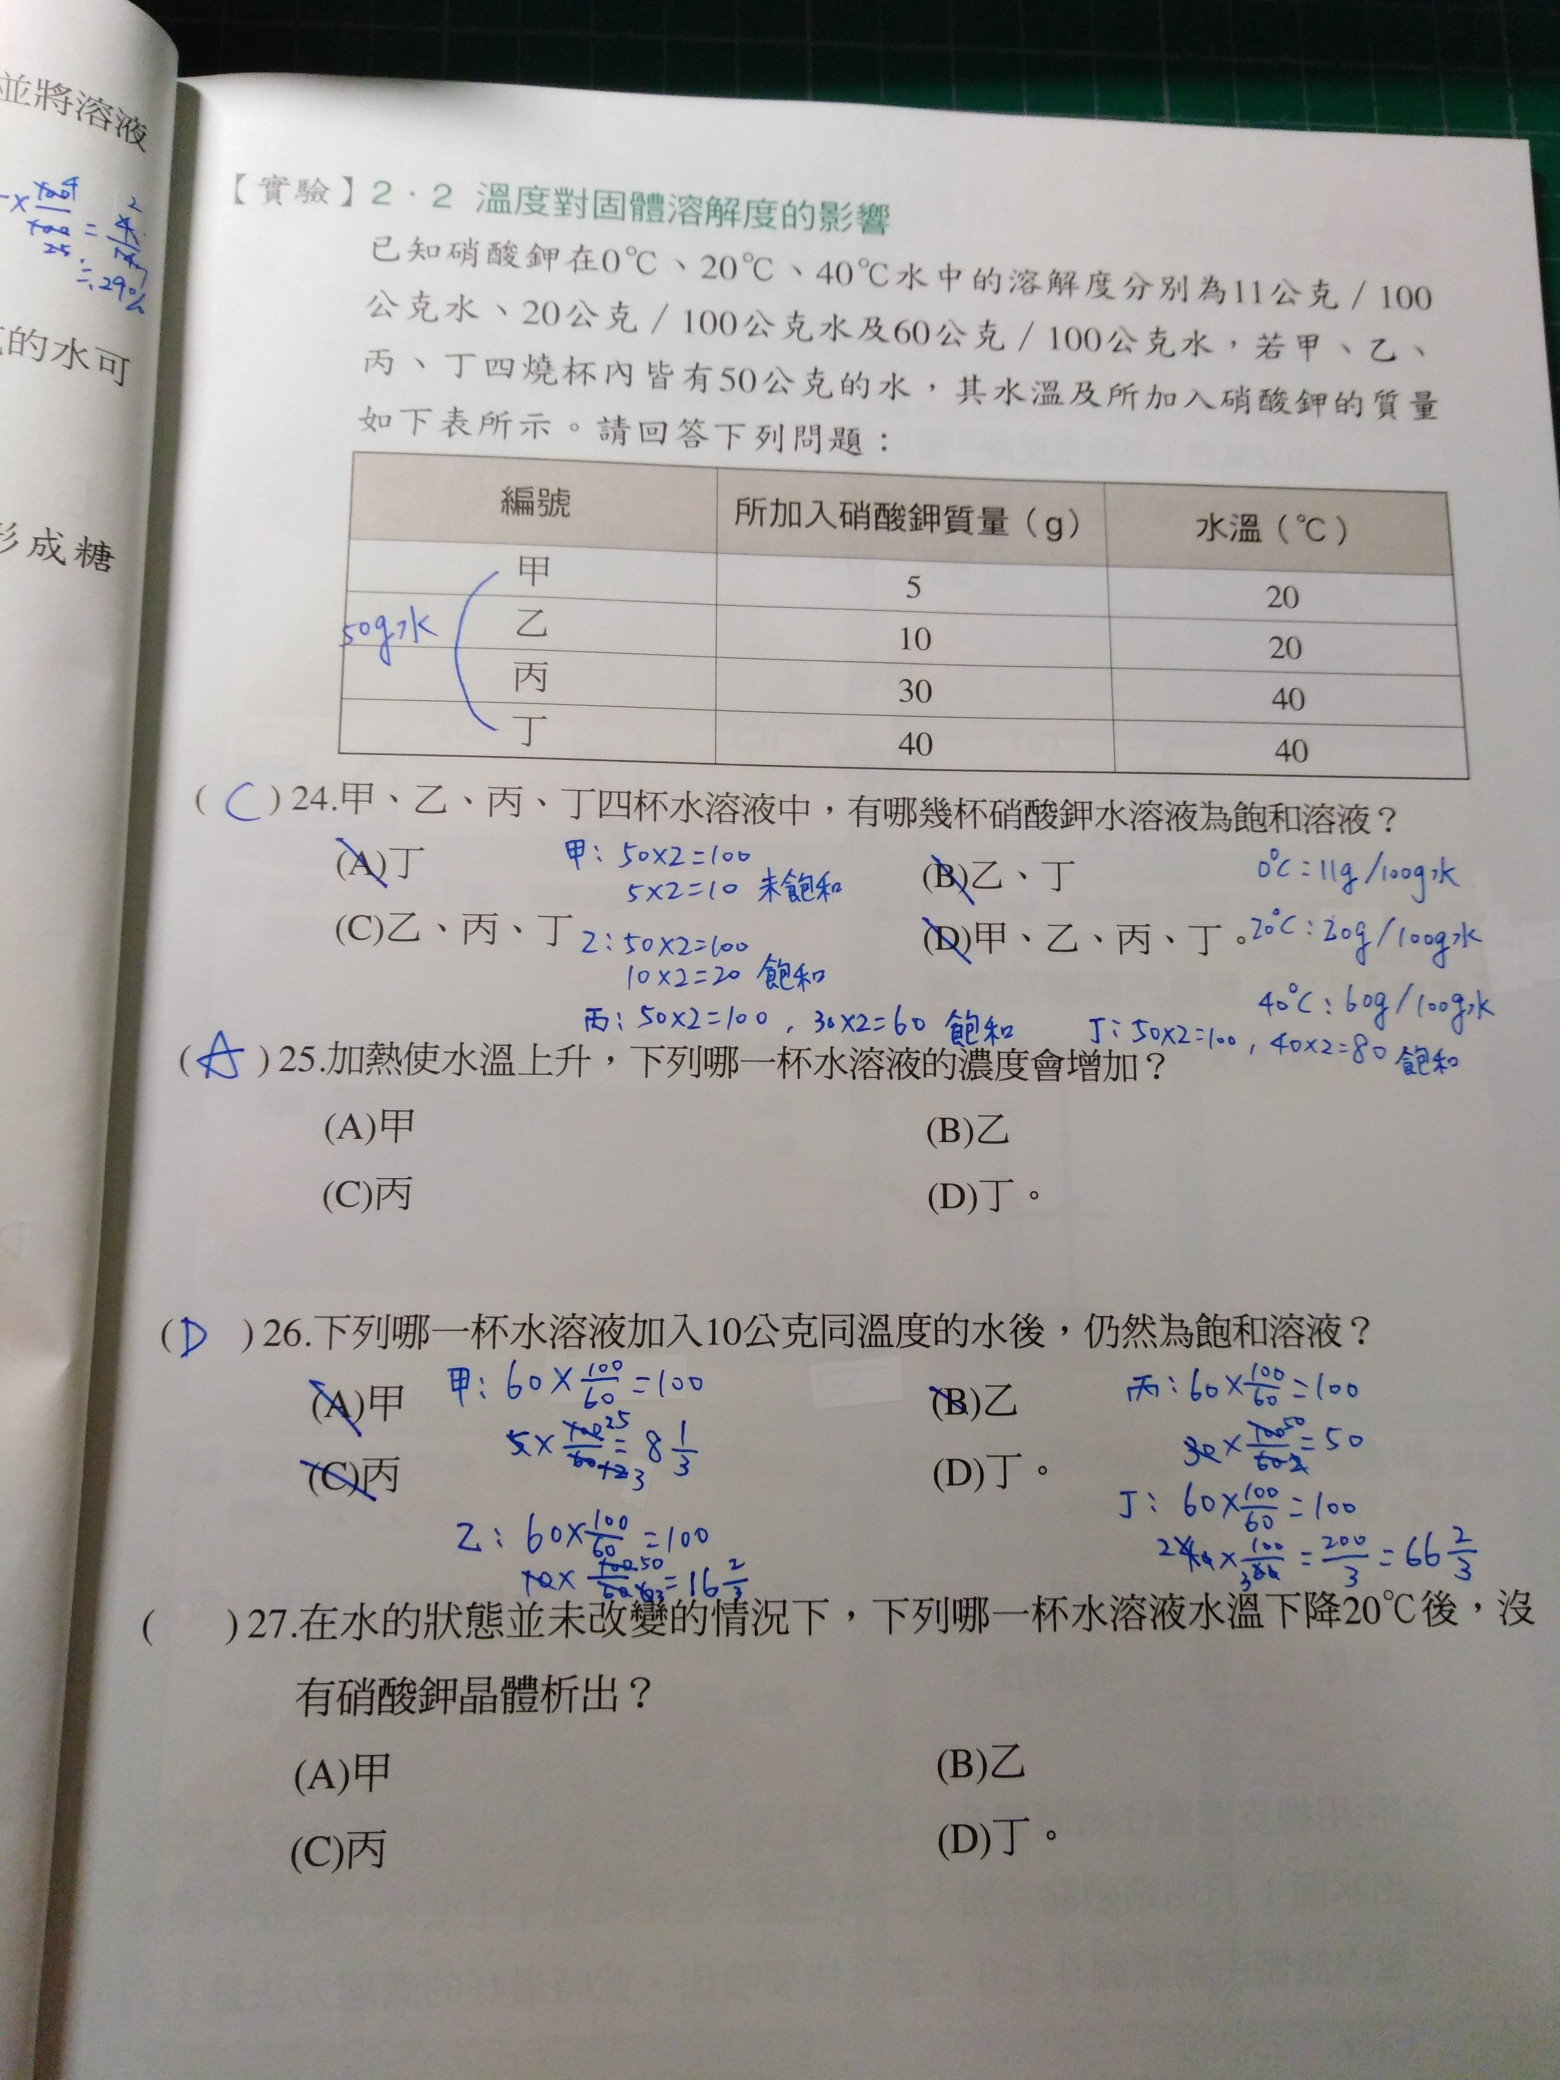 並將溶液
的水可
形成糖
【實驗】2‧2 溫度對固體溶解度的影響
已知硝酸鉀在0℃、20℃、40℃水中的溶解度分別為11公克/100
公克水、20公克/100公克水及60公克/100公克水,若甲、乙、
丙、丁四燒杯內皆有50公克的水,其水溫及所加入硝酸鉀的質量
如下表所示。請回答下列問題:
編號 所加入硝酸鉀質量(g) 水溫(℃)
甲 5 20
乙 10 20
丙 30 40
丁 40 40
50g水
( C )24.甲、乙、丙、丁四杯水溶液中,有哪幾杯硝酸鉀水溶液為飽和溶液?
(A)丁 (B)乙、丁
(C)乙、丙、丁 (D)甲、乙、丙、丁。
甲: 50×2=100
5×2=10 未飽和
乙: 50×2=100
10×2=20 飽和
丙: 50×2=100, 30×2=60 飽和
丁: 50×2=100, 40×2=80 飽和
0℃: 11g/100g水
20℃: 20g/100g水
40℃: 60g/100g水
( A )25.加熱使水溫上升,下列哪一杯水溶液的濃度會增加?
(A)甲 (B)乙
(C)丙 (D)丁。
( D )26.下列哪一杯水溶液加入10公克同溫度的水後,仍然為飽和溶液?
(A)甲 (B)乙
(C)丙 (D)丁。
甲: 60×100/60=100
5×100/60=8 1/3
乙: 60×100/60=100
10×100/60=16 2/3
丙: 60×100/60=100
30×100/60=50
丁: 60×100/60=100
40×100/60=200/3=66 2/3
( )27.在水的狀態並未改變的情況下,下列哪一杯水溶液水溫下降20℃後,沒
有硝酸鉀晶體析出?
(A)甲 (B)乙
(C)丙 (D)丁。